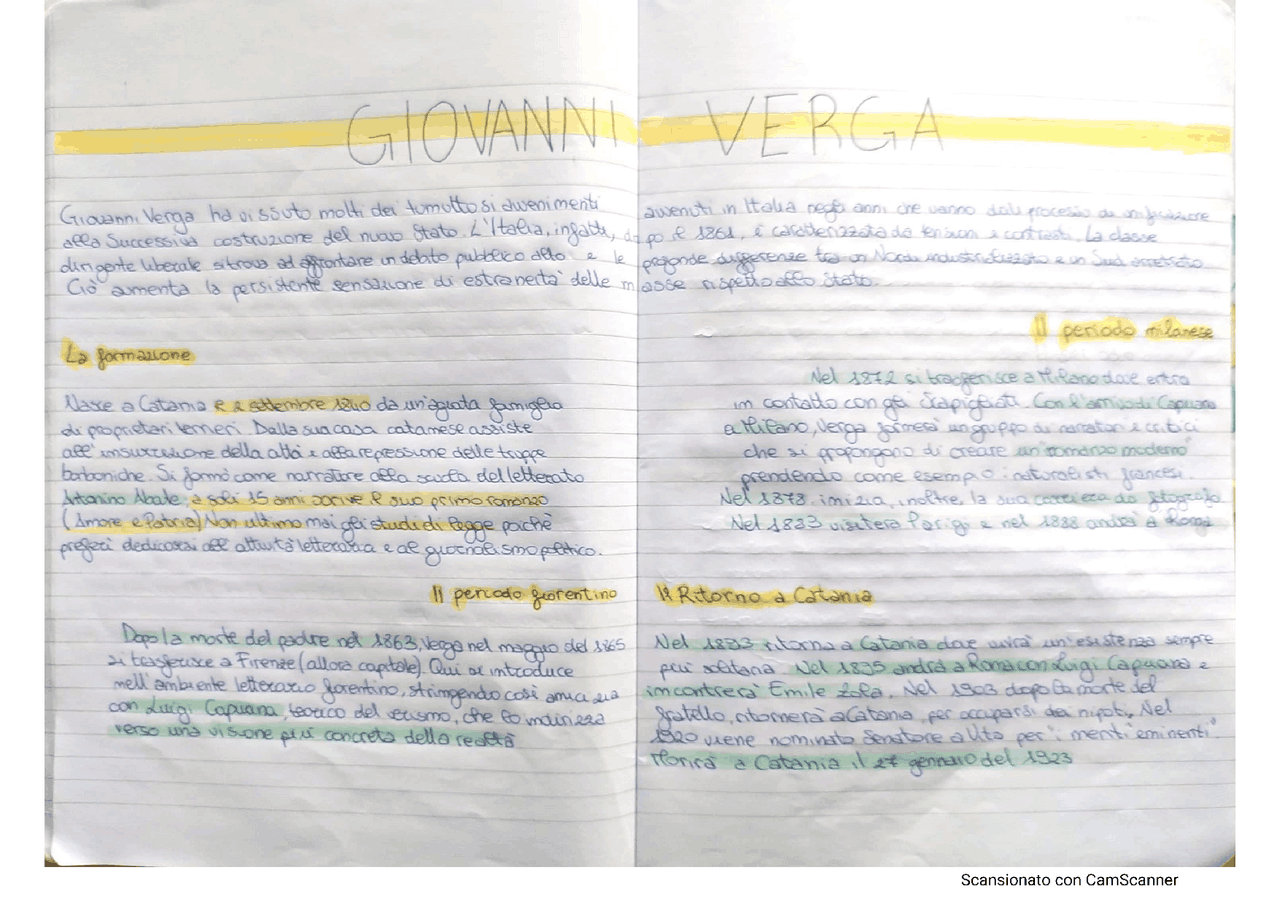 GIOVANNI VERGA
Giovanni Verga ha vissuto molti dei tumultuosi avvenimenti avvenuti in Italia negli anni che vanno dal processo di unificazione
alla successiva costruzione del nuovo Stato. L'Italia, infatti, dopo il 1861, è caratterizzata da tensioni e contrasti. La classe
dirigente liberale si trova ad affrontare un debito pubblico alto e le profonde differenze tra un Nord industrializzato e un Sud arretrato.
Ciò aumenta la persistente sensazione di estraneità delle masse rispetto allo Stato.
La formazione
Nasce a Catania il 2 settembre 1840 da un'agiata famiglia
di proprietari terrieri. Dalla sua casa catanese assiste
all'insurrezione della città e alla repressione delle truppe
borboniche. Si formò come narratore alla scuola del letterato
Antonino Abate, a soli 15 anni scrive il suo primo romanzo
(Amore e Patria). Non ultimò mai gli studi di legge poichè
preferì dedicarsi all'attività letteraria e al giornalismo politico.
Il periodo fiorentino
Dopo la morte del padre nel 1863, Verga nel maggio del 1865
si trasferisce a Firenze (allora capitale). Qui si introduce
nell'ambiente letterario fiorentino, stringendo così amicizia
con Luigi Capuana, teorico del verismo, che lo indirizza
verso una visione più concreta della realtà
Il periodo milanese
Nel 1872 si trasferisce a Milano dove entra
in contatto con gli Scapigliati. Con l'arrivo di Capuana
a Milano, Verga formerà un gruppo di narratori e critici
che si propongono di creare un "romanzo moderno"
prendendo come esempio i naturalisti francesi.
Nel 1878 inizia, inoltre, la sua carriera da fotografo
Nel 1883 visiterà Parigi e nel 1888 andrà a Roma
Il Ritorno a Catania
Nel 1893 ritorna a Catania dove vivrà un'esistenza sempre
più solitaria. Nel 1895 andrà a Roma con Luigi Capuana e
incontrerà Emile Zola. Nel 1903 dopo la morte del
fratello, ritornerà a Catania, per occuparsi dei nipoti. Nel
1920 viene nominato Senatore a Vita per "i meriti eminenti".
Morirà a Catania il 27 gennaio del 1923
Scansionato con CamScanner